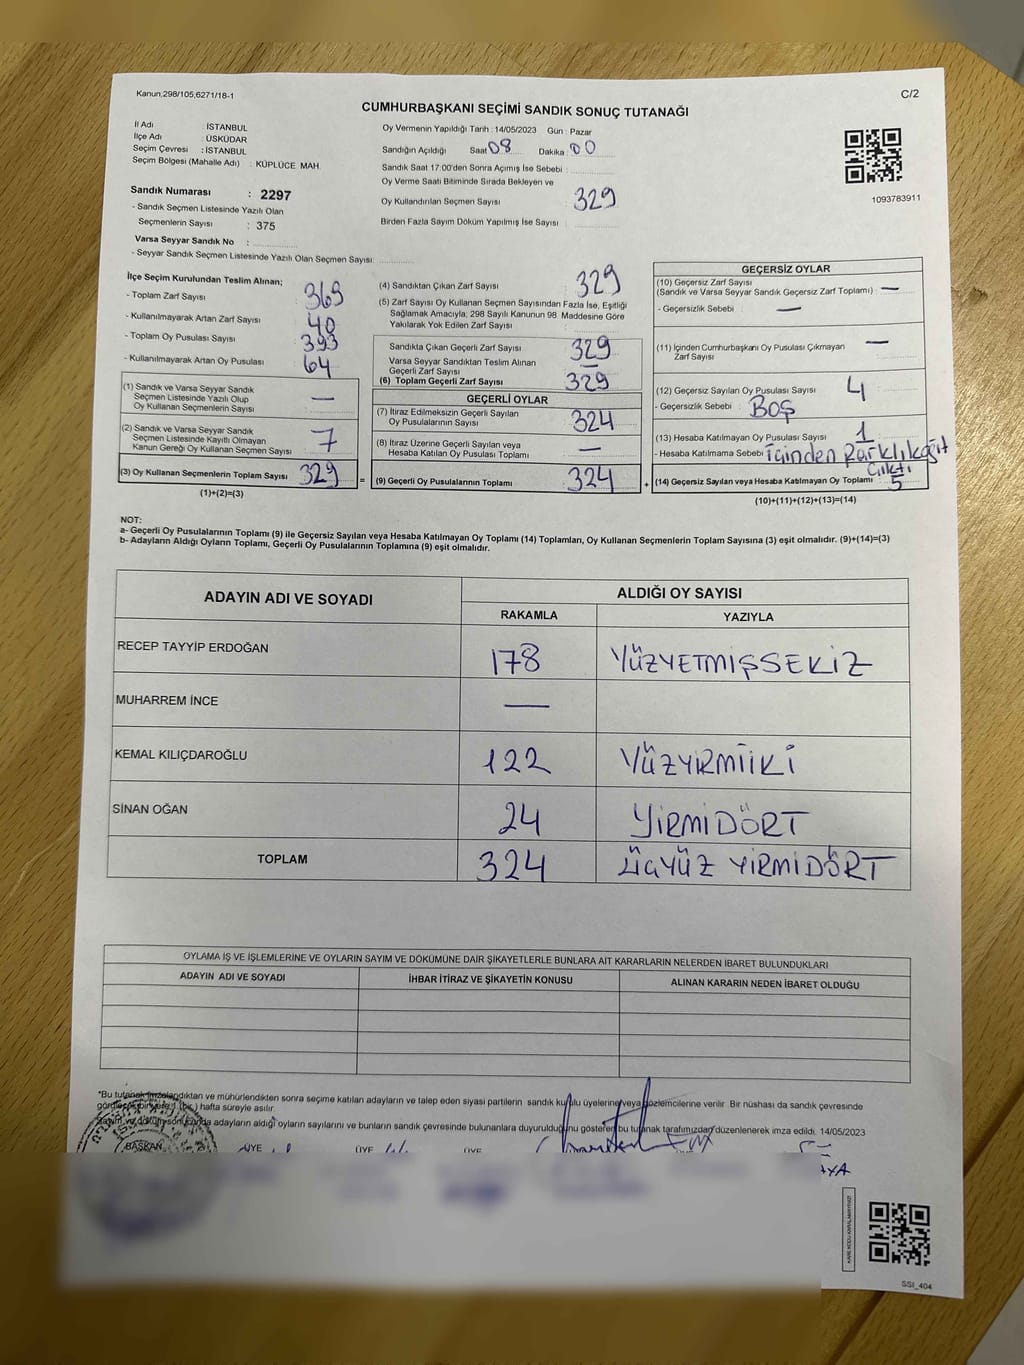 Kanun,298/105,6271/18-1
C/2
CUMHURBAŞKANI SEÇİMİ SANDIK SONUÇ TUTANAĞI
İl Adı : İSTANBUL
İlçe Adı : ÜSKÜDAR
Seçim Çevresi : İSTANBUL
Seçim Bölgesi (Mahalle Adı) : KÜPLÜCE MAH.
Sandık Numarası : 2297
- Sandık Seçmen Listesinde Yazılı Olan
Seçmenlerin Sayısı : 375
Varsa Seyyar Sandık No :
- Seyyar Sandık Seçmen Listesinde Yazılı Olan Seçmen Sayısı:
Oy Vermenin Yapıldığı Tarih : 14/05/2023 Gün : Pazar
Sandığın Açıldığı Saat 08 Dakika : 00
Sandık Saat 17:00'den Sonra Açımış İse Sebebi :
Oy Verme Saati Bitiminde Sırada Bekleyen ve
Oy Kullandırılan Seçmen Sayısı : 329
Birden Fazla Sayım Döküm Yapılmış İse Sayısı :
1093783911
İlçe Seçim Kurulundan Teslim Alınan;
- Toplam Zarf Sayısı : 369
- Kullanılmayarak Artan Zarf Sayısı : 40
- Toplam Oy Pusulası Sayısı : 393
- Kullanılmayarak Artan Oy Pusulası : 64
(1) Sandık ve Varsa Seyyar Sandık
Seçmen Listesinde Yazılı Olup
Oy Kullanan Seçmenlerin Sayısı : —
(2) Sandık ve Varsa Seyyar Sandık
Seçmen Listesinde Kayıtlı Olmayan
Kanun Gereği Oy Kullanan Seçmen Sayısı : 7
(3) Oy Kullanan Seçmenlerin Toplam Sayısı : 329
(1)+(2)=(3)
=
(4) Sandıktan Çıkan Zarf Sayısı : 329
(5) Zarf Sayısı Oy Kullanan Seçmen Sayısından Fazla İse, Eşitliği
Sağlamak Amacıyla; 298 Sayılı Kanunun 98. Maddesine Göre
Yakılarak Yok Edilen Zarf Sayısı :
Sandıkta Çıkan Geçerli Zarf Sayısı : 329
Varsa Seyyar Sandıktan Teslim Alınan
Geçerli Zarf Sayısı : —
(6) Toplam Geçerli Zarf Sayısı : 329
GEÇERLİ OYLAR
(7) İtiraz Edilmeksizin Geçerli Sayılan
Oy Pusulalarının Sayısı : 324
(8) İtiraz Üzerine Geçerli Sayılan veya
Hesaba Katılan Oy Pusulası Toplamı : —
(9) Geçerli Oy Pusulalarının Toplamı : 324
+
GEÇERSİZ OYLAR
(10) Geçersiz Zarf Sayısı
(Sandık ve Varsa Seyyar Sandık Geçersiz Zarf Toplamı) : —
- Geçersizlik Sebebi : —
(11) İçinden Cumhurbaşkanı Oy Pusulası Çıkmayan
Zarf Sayısı : —
(12) Geçersiz Sayılan Oy Pusulası Sayısı : 4
- Geçersizlik Sebebi : BOŞ
(13) Hesaba Katılmayan Oy Pusulası Sayısı : 1
- Hesaba Katılmama Sebebi : içinden farklıkağıt
Çıktı
(14) Geçersiz Sayılan veya Hesaba Katılmayan Oy Toplamı : 5
(10)+(11)+(12)+(13)=(14)
NOT:
a- Geçerli Oy Pusulalarının Toplamı (9) ile Geçersiz Sayılan veya Hesaba Katılmayan Oy Toplamı (14) Toplamları, Oy Kullanan Seçmenlerin Toplam Sayısına (3) eşit olmalıdır. (9)+(14)=(3)
b- Adayların Aldığı Oyların Toplamı, Geçerli Oy Pusulalarının Toplamına (9) eşit olmalıdır.
ADAYIN ADI VE SOYADI
ALDIĞI OY SAYISI
RAKAMLA YAZIYLA
RECEP TAYYİP ERDOĞAN 178 YÜZYETMİŞSEKİZ
MUHARREM İNCE —
KEMAL KILIÇDAROĞLU 122 YÜZYİRMİİKİ
SİNAN OĞAN 24 YİRMİDÖRT
TOPLAM 324 ÜÇYÜZ YİRMİDÖRT
OYLAMA İŞ VE İŞLEMLERİNE VE OYLARIN SAYIM VE DÖKÜMÜNE DAİR ŞİKAYETLERLE BUNLARA AİT KARARLARIN NELERDEN İBARET BULUNDUKLARI
ADAYIN ADI VE SOYADI İHBAR İTİRAZ VE ŞİKAYETİN KONUSU ALINAN KARARIN NEDEN İBARET OLDUĞU
*Bu tutanak imzalandıktan ve mühürlendikten sonra seçime katılan adayların ve talep eden siyasi partilerin sandık kurulu üyelerine veya gözlemcilerine verilir. Bir nüshası da sandık çevresinde
hafta süreyle asılır.
adayların aldığı oyların sayılarını ve bunların sandık çevresinde bulunanlara duyurulduğunu gösteren bu tutanak tarafımızdan düzenlenerek imza edildi. 14/05/2023
BAŞKAN ÜYE ÜYE ÜYE
KARE KODU KARALAMAYINIZ!
SSI_404